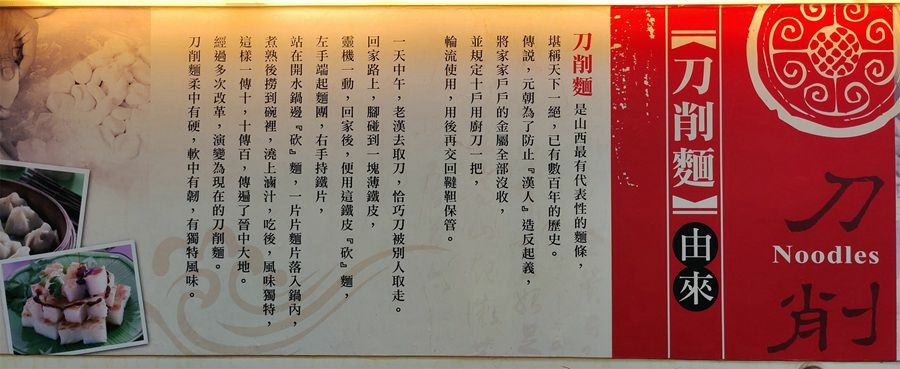 刀削
Noodles
【刀削麵】由來
刀削麵 是山西最有代表性的麵條，
堪稱天下一絕，已有數百年的歷史。
傳說，元朝為了防止『漢人』造反起義，
將家家戶戶的金屬全部沒收，
並規定十戶用廚刀一把，
輪流使用，用後再交回韃靼保管。
一天中午，老漢去取刀，恰巧刀被別人取走。
回家路上，腳碰到一塊薄鐵皮，
靈機一動，回家後，便用這鐵皮『砍』麵，
左手端起麵團，右手持鐵片，
站在開水鍋邊『砍』麵，一片片麵片落入鍋內，
煮熟後撈到碗裡，澆上滷汁，吃後，風味獨特，
這樣一傳十，十傳百，傳遍了晉中大地。
經過多次改革，演變為現在的刀削麵。
刀削麵柔中有硬，軟中有韌，有獨特風味。